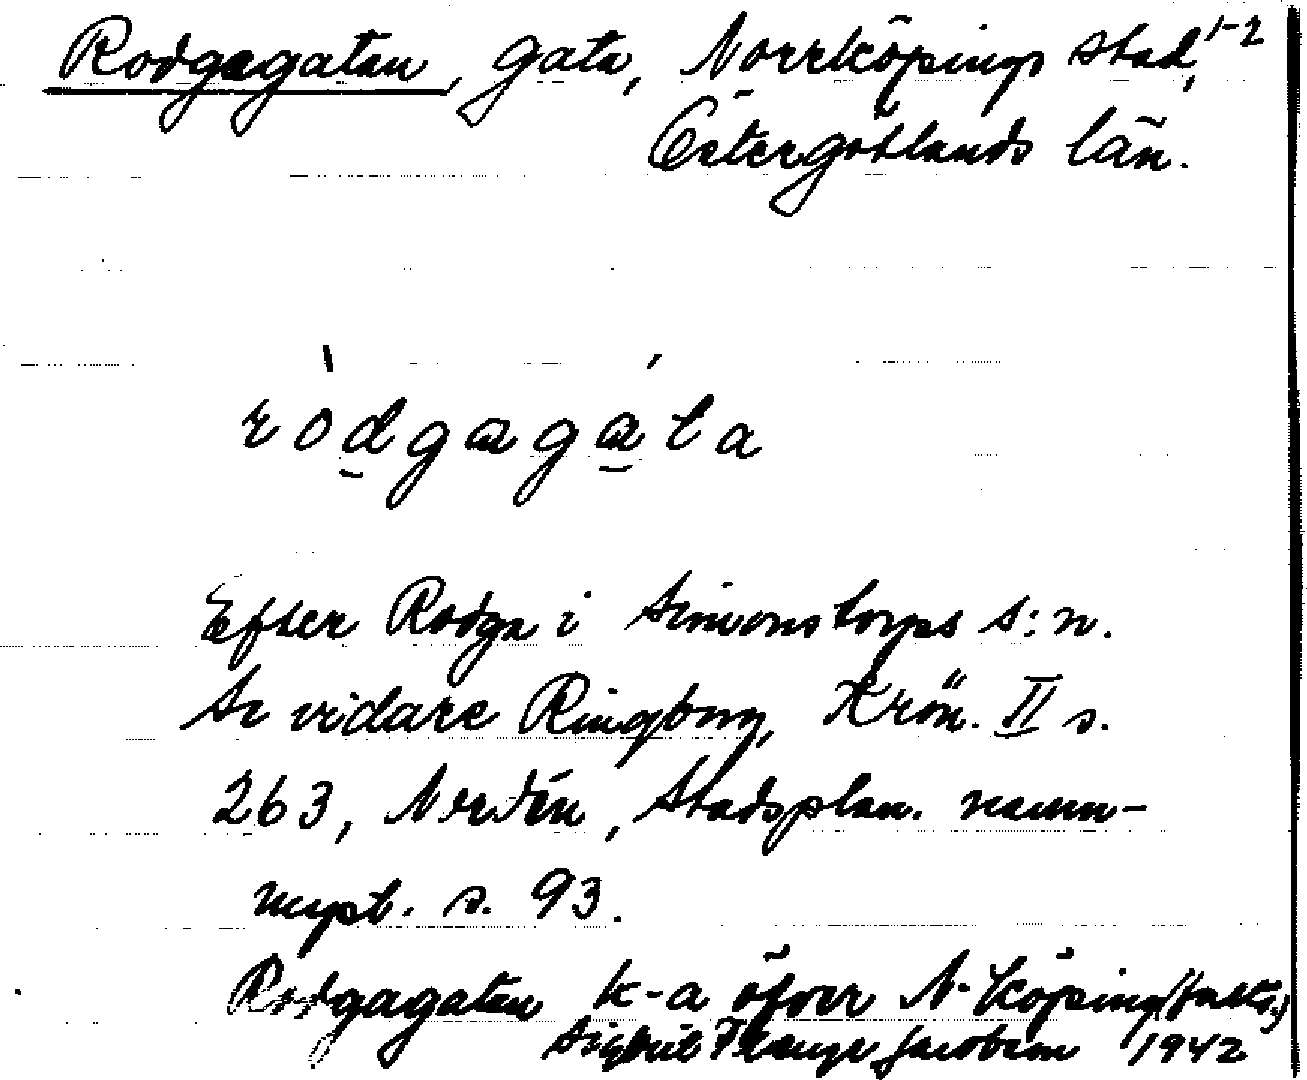 Rodgagatan, gata, Norrköpings stad, 1-2
Östergötlands län.
ròdgagáta
Efter Rodga i Simonstorps s:n.
Se vidare Ringborg, Krön. II s.
263, Nerdén, Stadsplan. namn-
uppt. s. 93.
Rodgagatan k-a öfver N-köping
1942